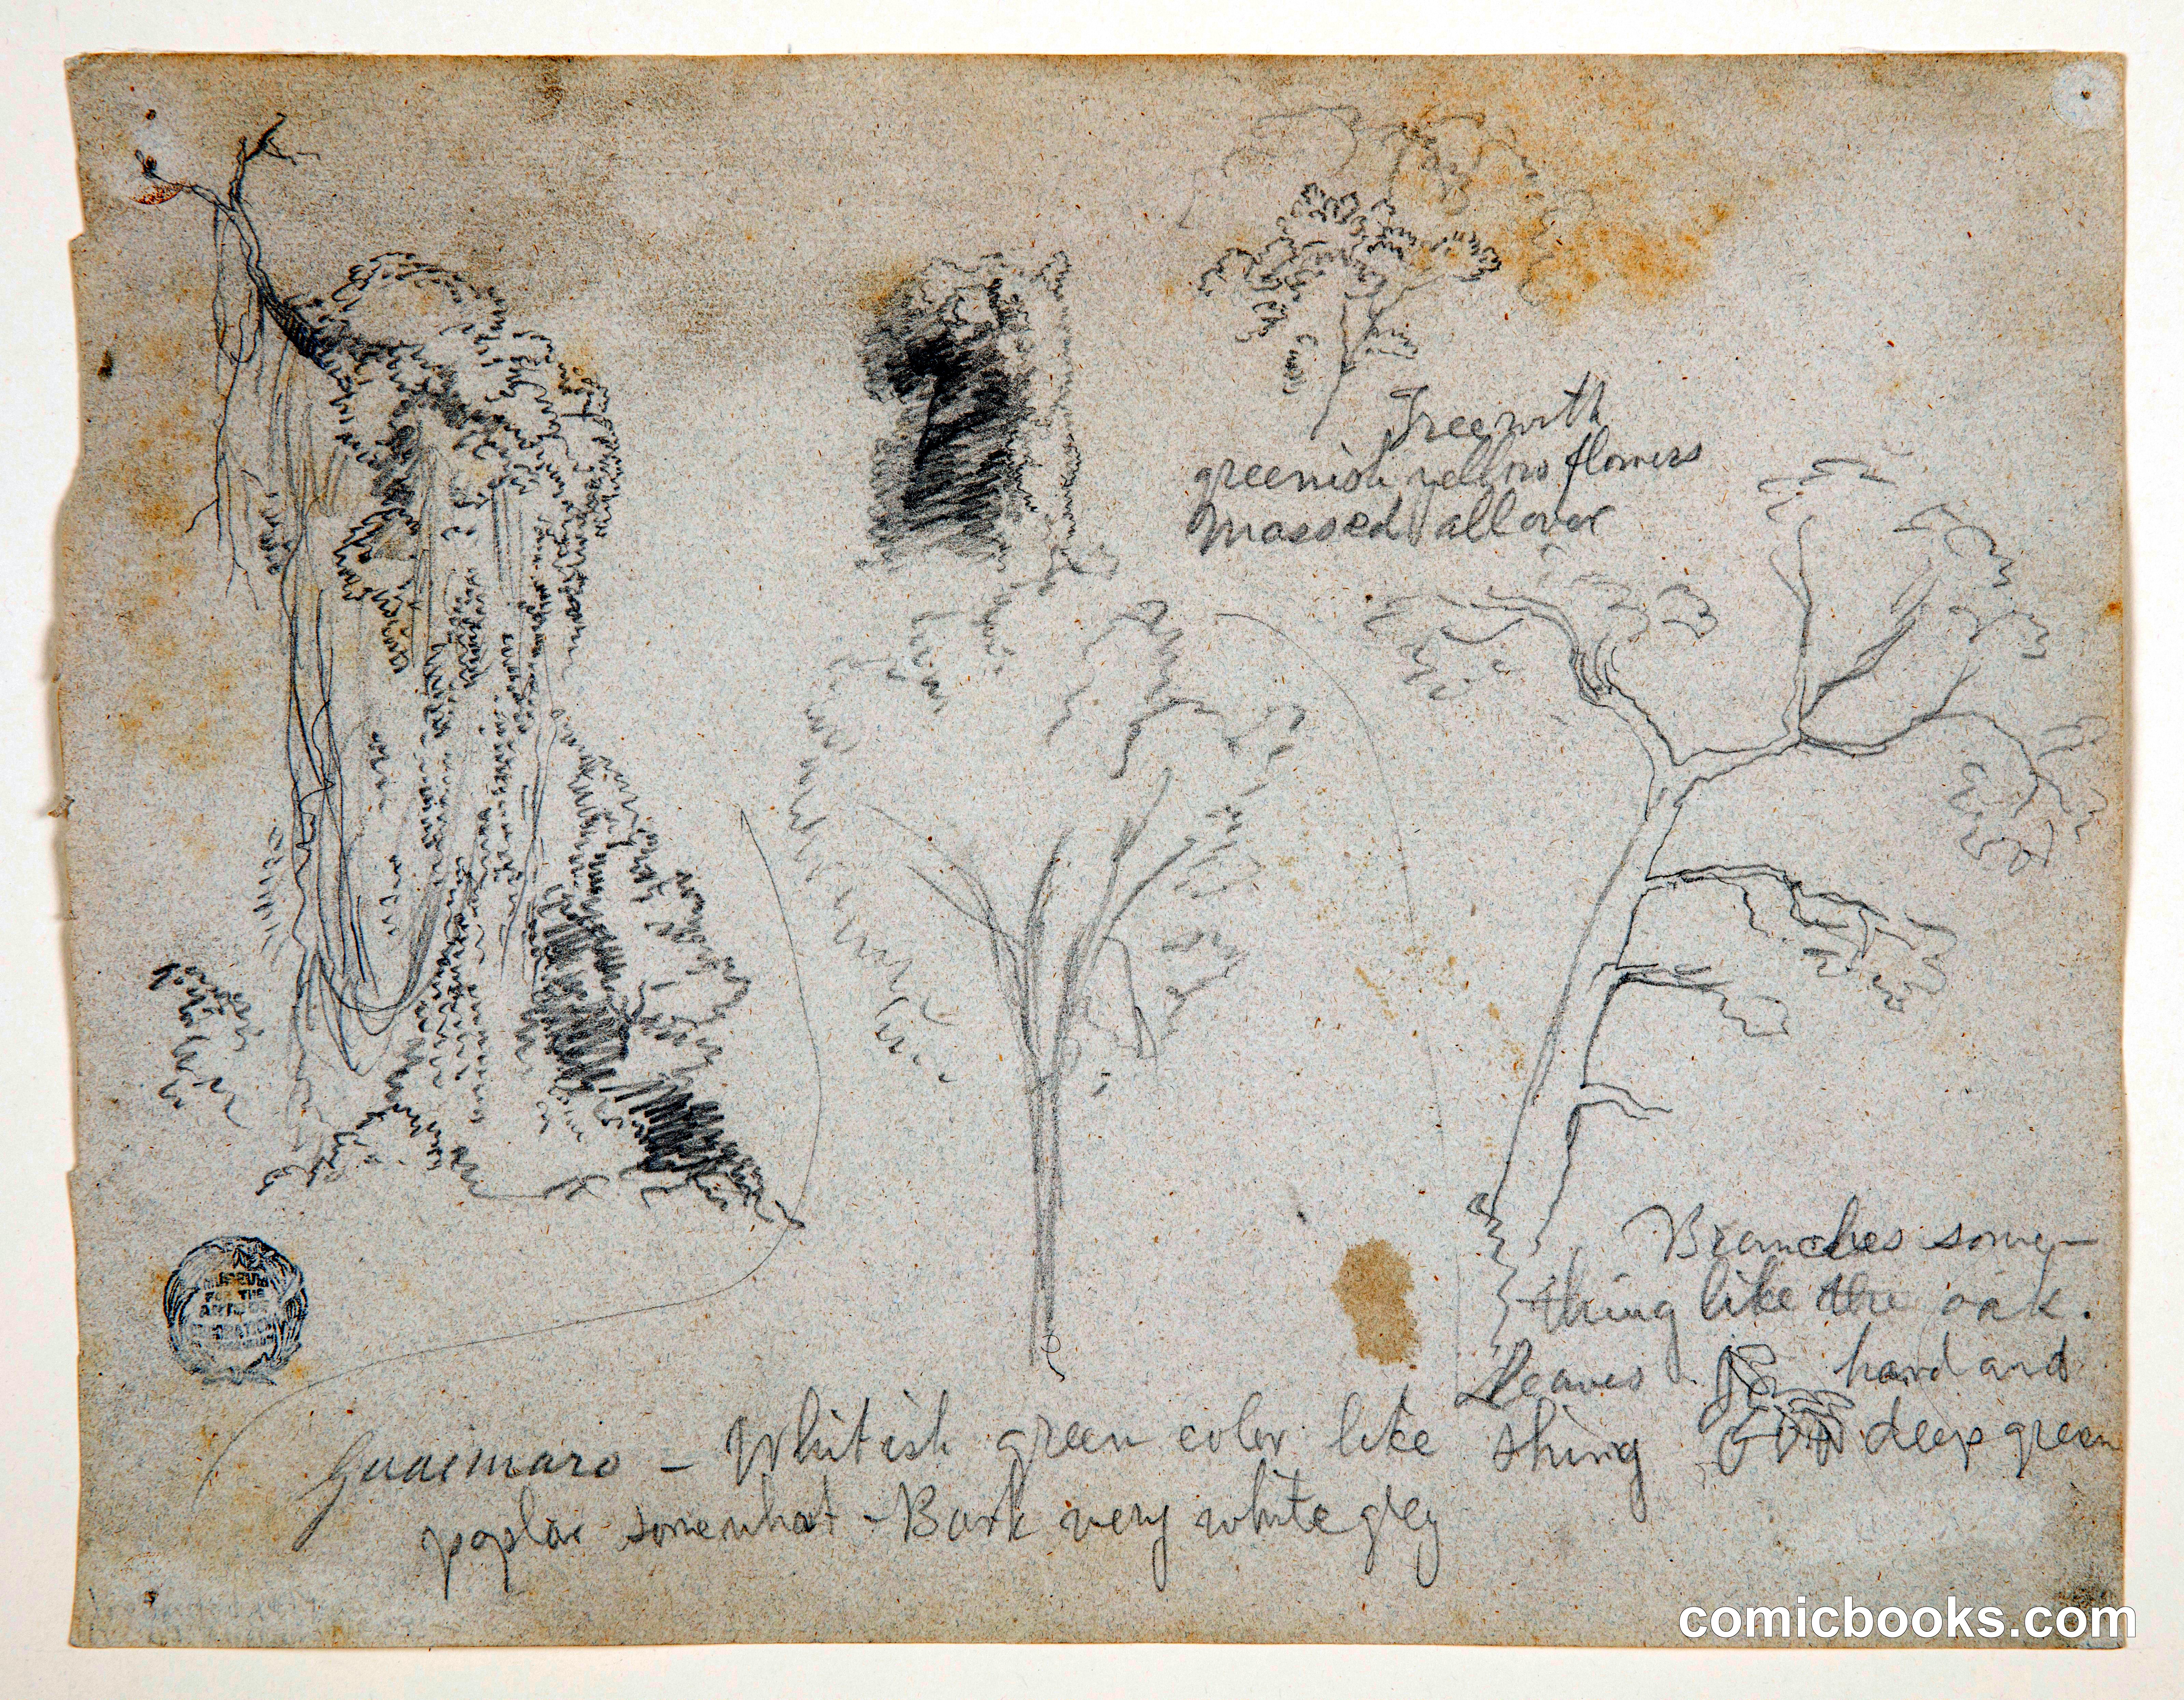 Tree with
greenish yellow flowers
massed all over
Branches some-
thing like the oak.
Leaves hard and
shing deep green
Guaimaro - Whitish green color like
poplar somewhat - Bark very white grey
MUSEUM
FOR THE
ARTS OF
DECORATION
comicbooks.com